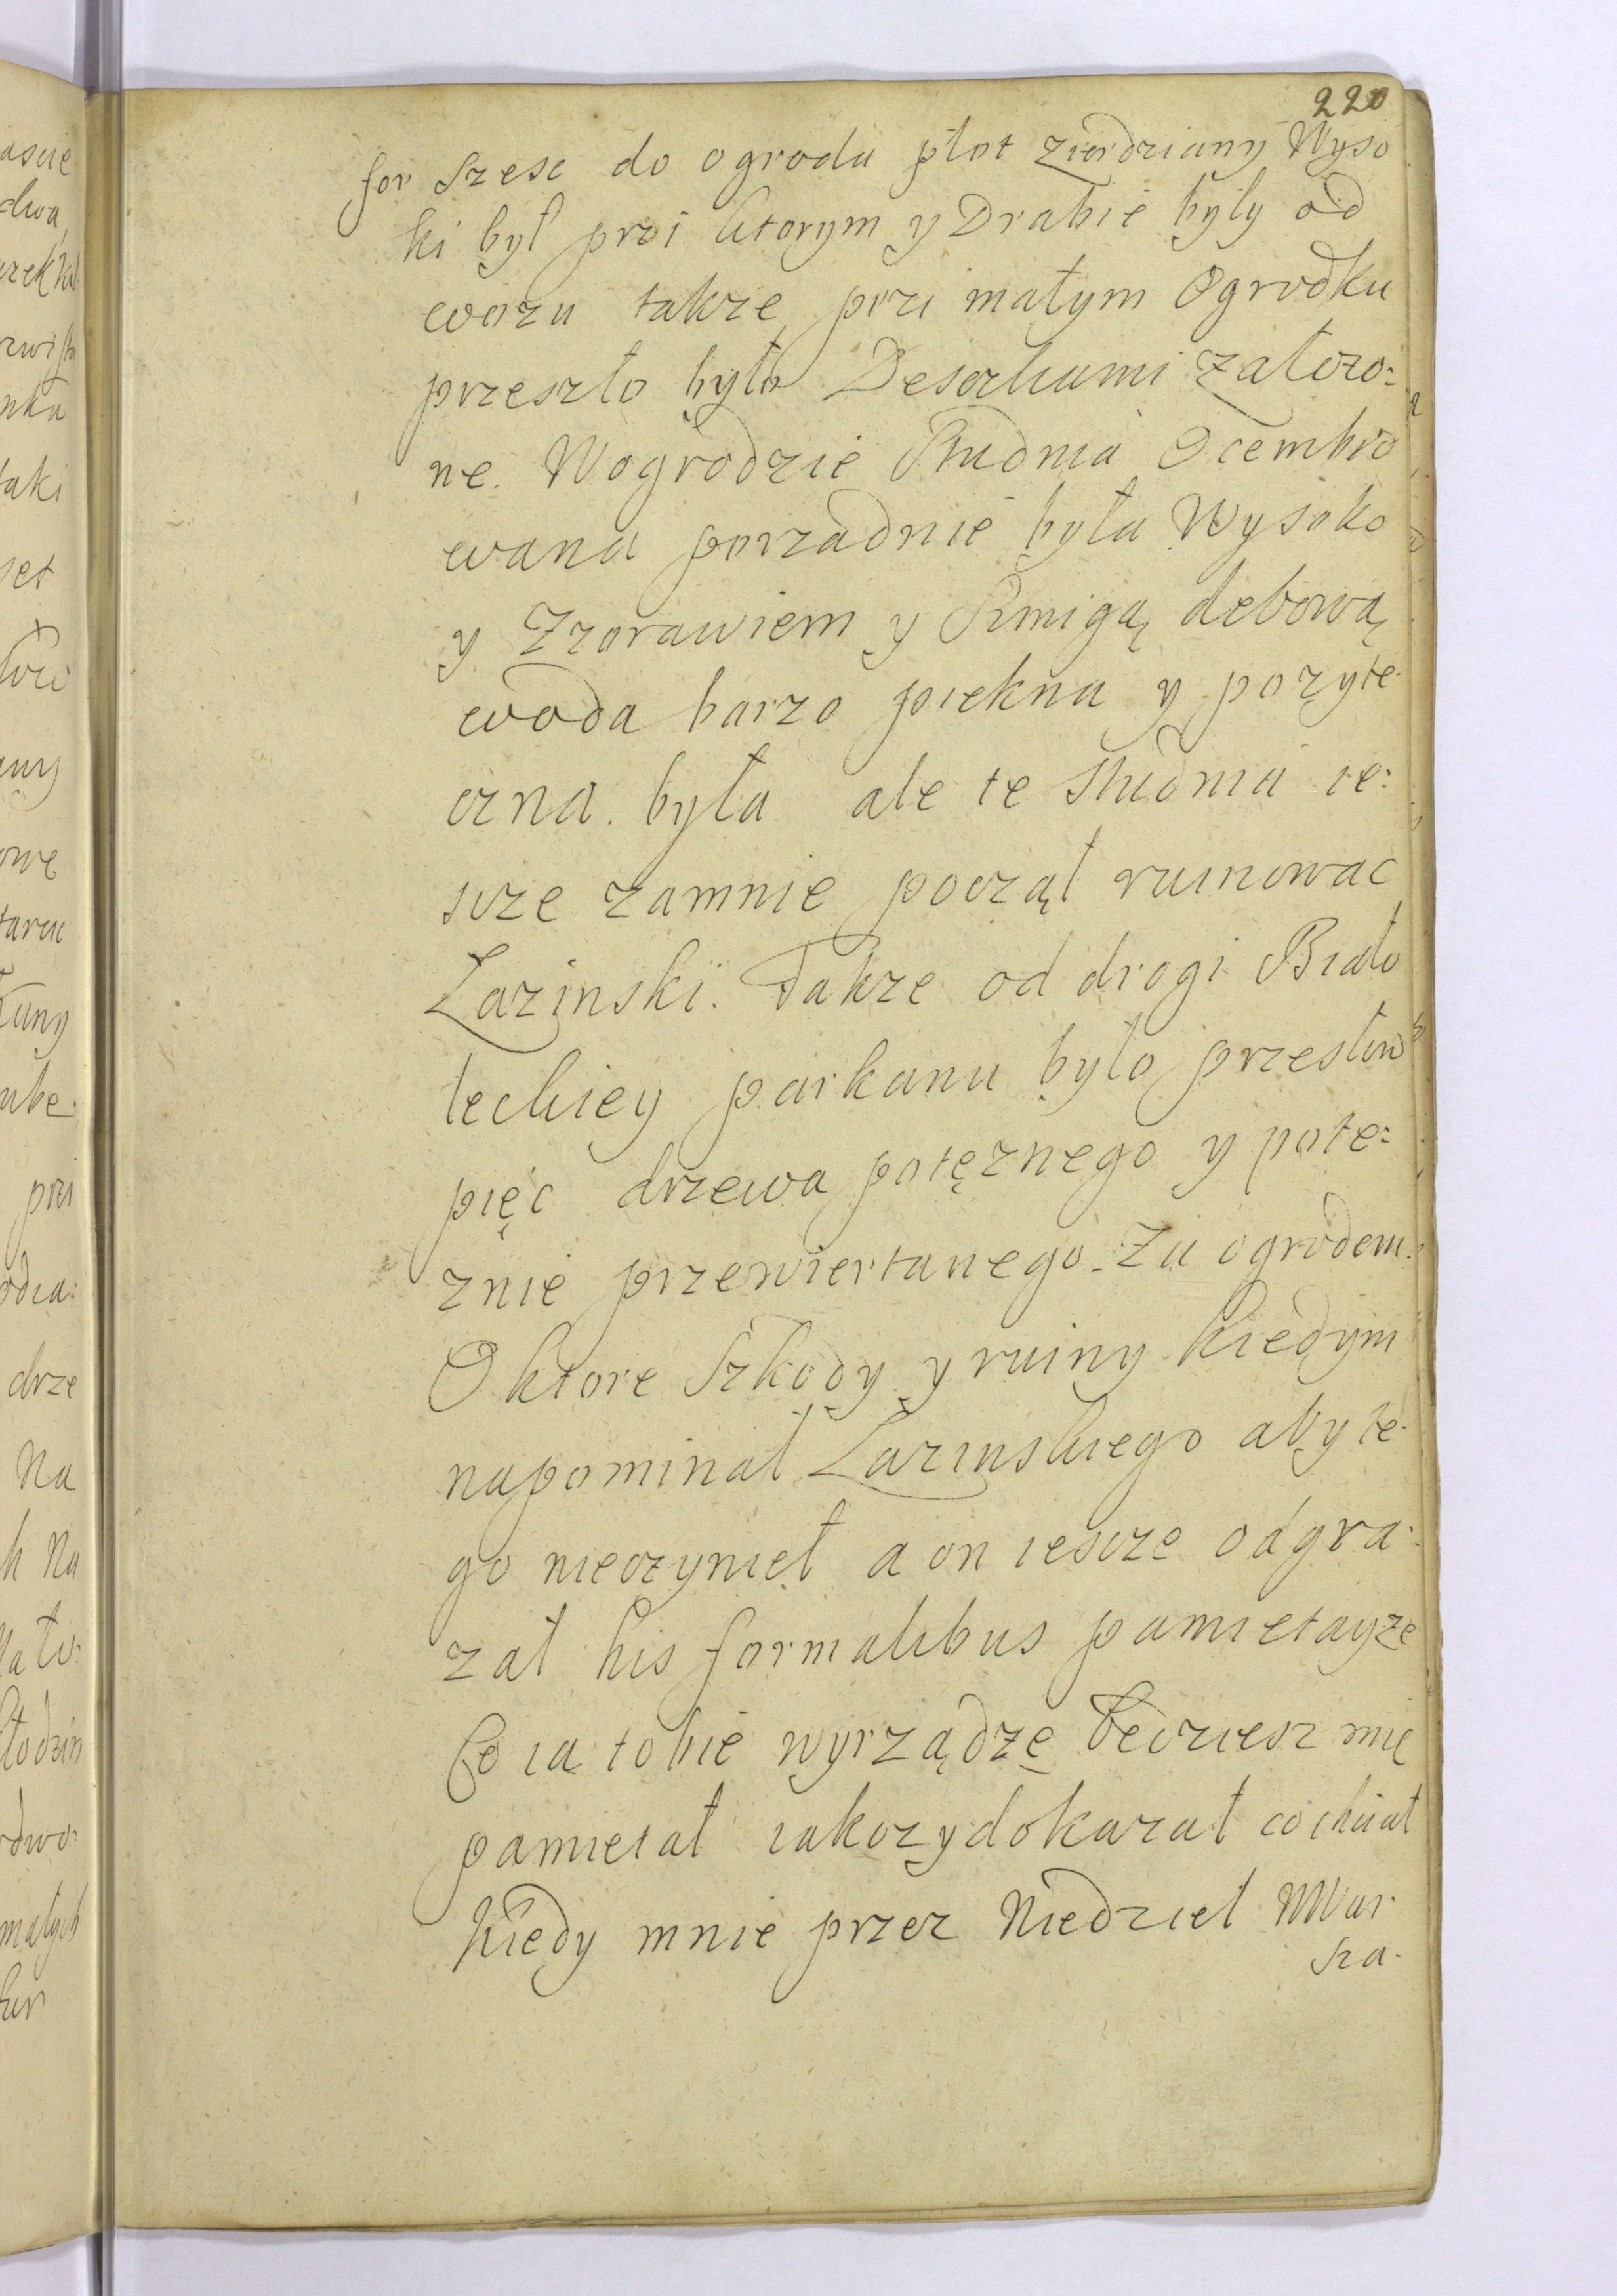 220
for Szesc do ogrodu płot zierdziany Wyso
ki był przi ktorym y Drabie były od
wozu takze przi małym Ogrodku
przeszło było Desczkami załozo:
ne. Wogrodzie Studnia Ocembro
wana porzadnie była Wysoko
y Zzorawiem y Smigą debową
woda barzo piekna y pozyte-
czna. była ale te Studnia ie:
scze zamnie począł ruinowac
Lazinski. Takze od drogi Biało
leckiey parkanu było przesłow
pięc drzewa potęznego y pote:
znie przewiertanego. Za ogrodem.
O ktore Szkody y ruiny kiedym
napominał Lazinskiego aby te-
go nieczynieł a on iescze odgra:
zał his formalibus pamietayze
Co ia tobie wyrządzę bedziesz mię
pamietał iakozydokazał cochciał
Kiedy mnie przez Niedziel WWar-
sza-